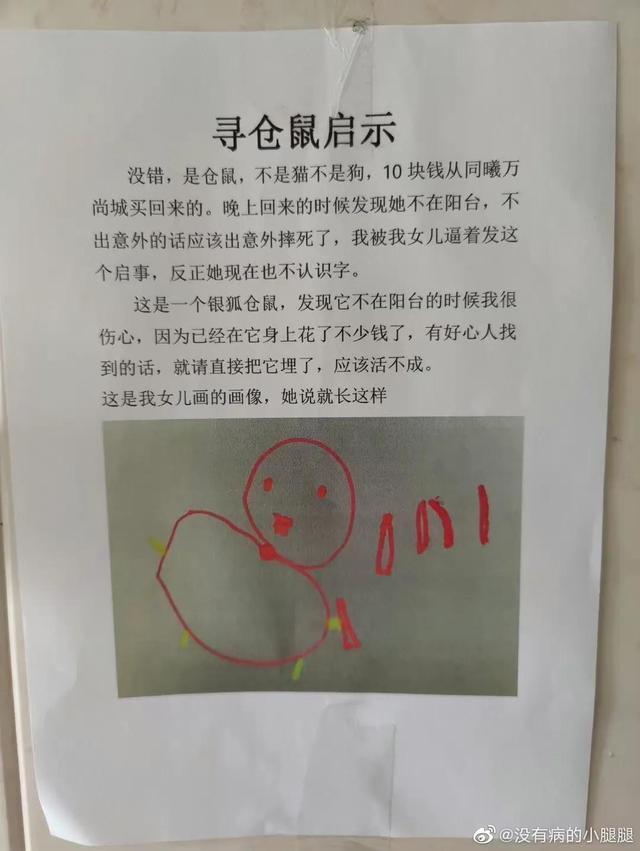 寻仓鼠启示
没错，是仓鼠，不是猫不是狗，10 块钱从同曦万
尚城买回来的。晚上回来的时候发现她不在阳台，不
出意外的话应该出意外摔死了，我被我女儿逼着发这
个启事，反正她现在也不认识字。
这是一个银狐仓鼠，发现它不在阳台的时候我很
伤心，因为已经在它身上花了不少钱了，有好心人找
到的话，就请直接把它埋了，应该活不成。
这是我女儿画的画像，她说就长这样
@没有病的小腿腿